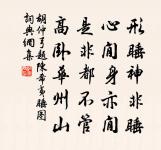 形睡神非睡
心閒身亦閒
是非都不管
高臥華州山
胡仲弓題陳希夷睡圖
詞典網集